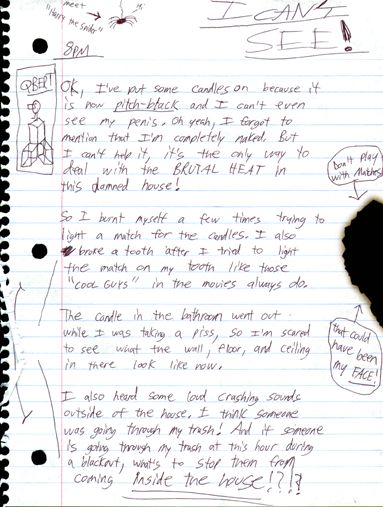 meet
"Harry the Spider"
I CAN'T
SEE!
8PM
QBERT!
OK, I've put some candles on because it
is now pitch-black and I can't even
see my penis. Oh yeah, I forgot to
mention that I'm completely naked. But
I can't help it, it's the only way to
deal with the BRUTAL HEAT in
this damned house!
Don't play
with Matches!
So I burnt myself a few times trying to
light a match for the candles. I also
broke a tooth after I tried to light
the match on my tooth like those
"COOL GUYS" in the movies always do.
The candle in the bathroom went out
while I was taking a piss, so I'm scared
to see what the wall, floor, and ceiling
in there look like now.
that could
have been
my FACE!
I also heard some loud crashing sounds
outside of the house. I think someone
was going through my trash! And if someone
is going through my trash at this hour during
a blackout, what's to stop them from
coming inside the house!?!?